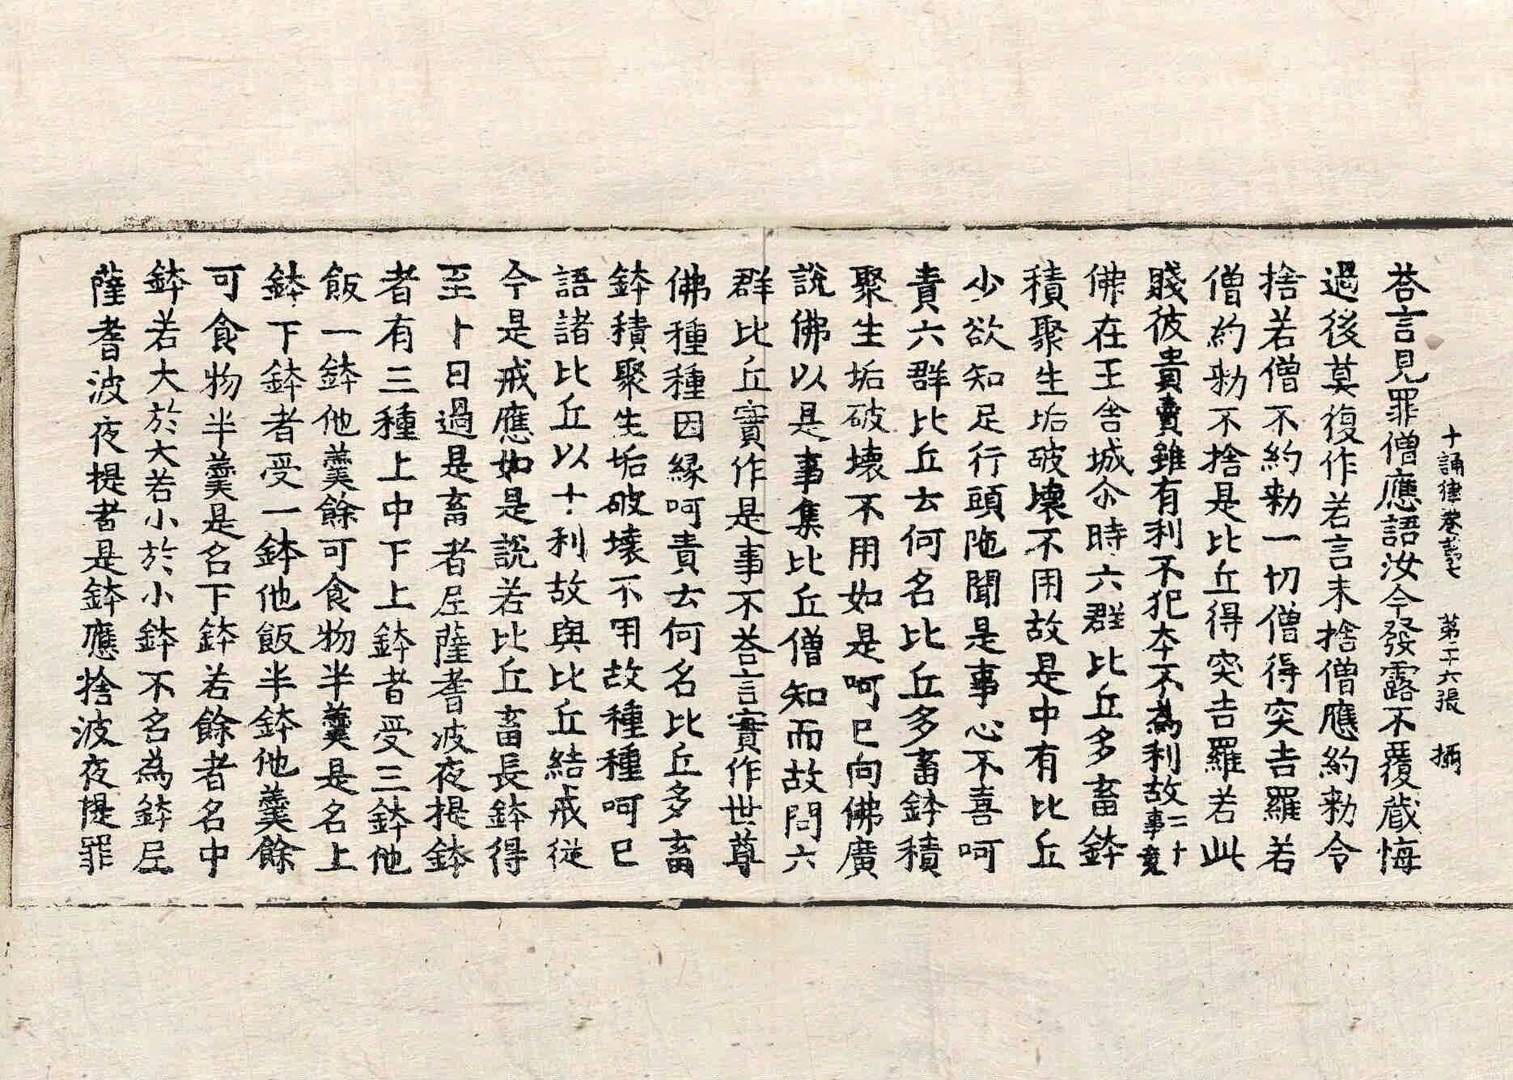 十誦律卷第七　第二十六張　搦
荅言見罪僧應語汝今發露不覆藏悔
過後莫復作若言未捨僧應約勑令
捨若僧不約勑一切僧得突吉羅若
僧約勑不捨是比丘得突吉羅若此
賤彼貴賣雖有利不犯本不為利故事二十竟
佛在王舍城尒時六群比丘多畜鉢
積聚生垢破壞不用故是中有比丘
少欲知足行頭陁聞是事心不喜呵
責六群比丘云何名比丘多畜鉢積
聚生垢破壞不用如是呵已向佛廣
說佛以是事集比丘僧知而故問六
群比丘實作是事不荅言實作世尊
佛種種因緣呵責云何名比丘多畜
鉢積聚生垢破壞不用故種種呵已
語諸比丘以十利故與比丘結戒從
今是戒應如是說若比丘畜長鉢得
至十日過是畜者尼薩耆波夜提鉢
者有三種上中下上鉢者受三鉢他
飯一鉢他羹餘可食物半羹是名上
鉢下鉢者受一鉢他飯半鉢他羹餘
可食物半羹是名下鉢若餘者名中
鉢若大於大若小於小鉢不名為鉢尼
薩耆波夜提者是鉢應捨波夜提罪